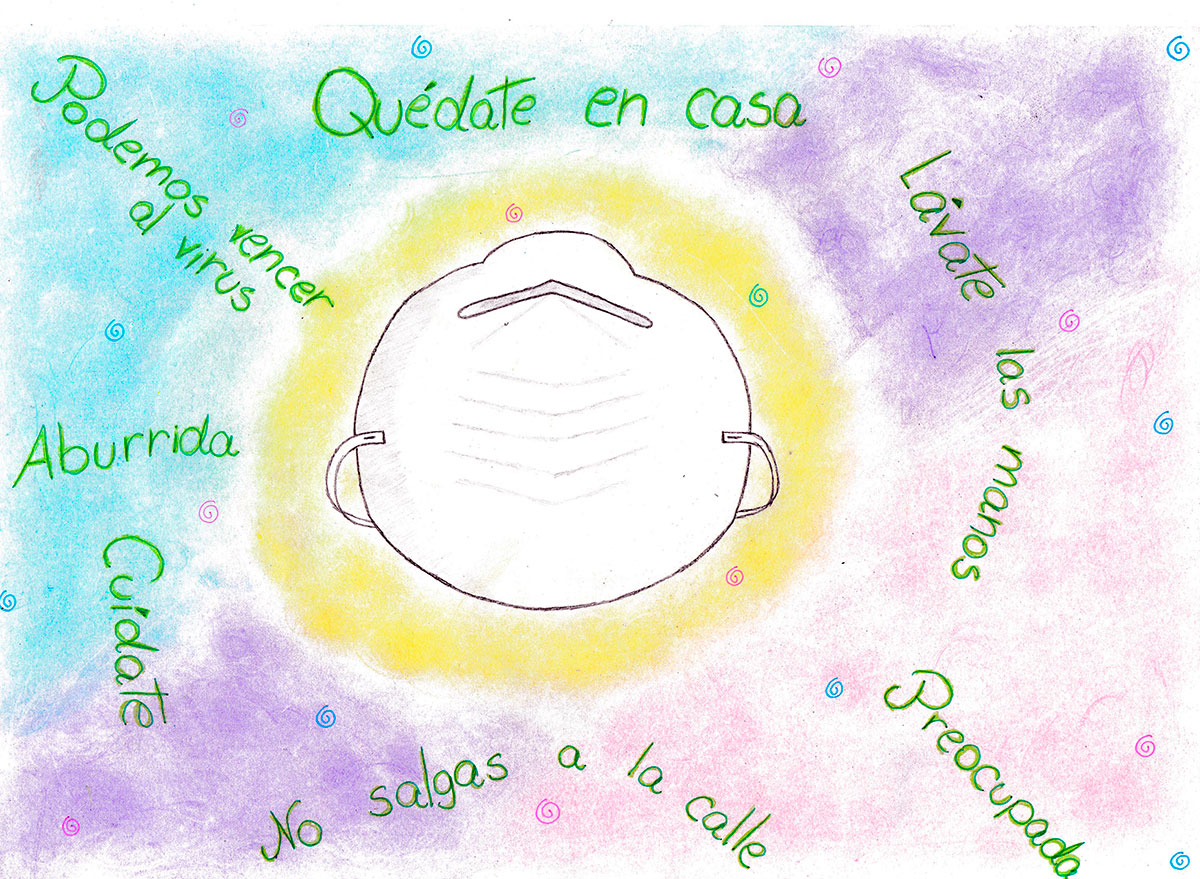 Quédate en casa
Podemos vencer
al virus
Lávate las manos
Aburrida
Cuídate
No salgas a la calle
Preocupada